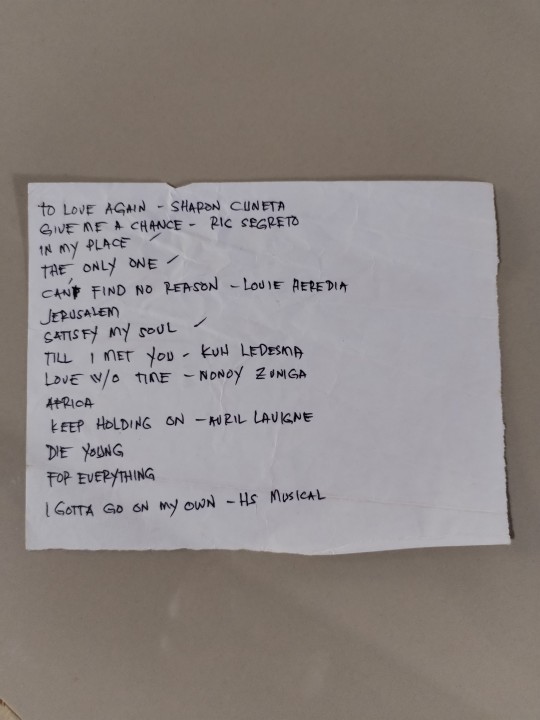 TO LOVE AGAIN - SHARON CUNETA
GIVE ME A CHANCE - RIC SEGRETO
IN MY PLACE ✓
THE ONLY ONE ✓
CAN'T FIND NO REASON - LOUIE HEREDIA
JERUSALEM
SATISFY MY SOUL ✓
TILL I MET YOU - KUH LEDESMA
LOVE W/O TIME - NONOY ZUNIGA
AFRICA
KEEP HOLDING ON - AVRIL LAVIGNE
DIE YOUNG
FOR EVERYTHING
I GOTTA GO ON MY OWN - HS MUSICAL